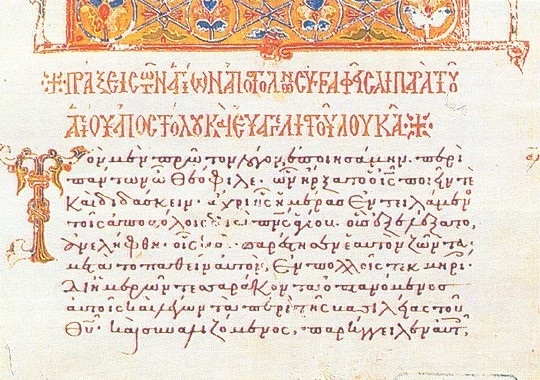 ΠΡΑΞΕΙΣ ΤῶΝ ἉΓΙΩΝ ΑΠΟΣΤΟΛΩΝ ΣΥΓΓΡΑΦΕῖΣΑΙ ΠΑΡΑ ΤΟῦ
ἉΓΙΟΥ ΑΠΟΣΤΟΛΟΥ Κ ΕΥΑΓΓΛΙΣΤΟῦ ΛΟΥΚᾶ
Τὸν μὲν πρῶτον λόγον ἐποιησάμην περὶ
πάντων ὦ Θεόφιλε. ὧν ἤρξατο ὁ ις ποιεῖν τε
καὶ διδάσκειν. ἄχρι ἧς ἡμέρας ἐντειλάμεν
τοῖς ἀποστόλοις διὰ πνς ἁγίου. οὓς ἐξελέξατο,
ἀνελήφθη. οἷς καὶ παρέστησεν ἑαυτὸν ζῶντα
μετὰ τὸ παθεῖν αὐτὸν, ἐν πολλοῖς τεκμηρί
δι ἡμερῶν τεσσαράκοντα ὀπτανόμενος
αὐτοῖς καὶ λέγων τὰ περὶ τῆς βασιλείας τοῦ
θυ. καὶ συναλιζόμενος, παρήγγειλεν αὐτ